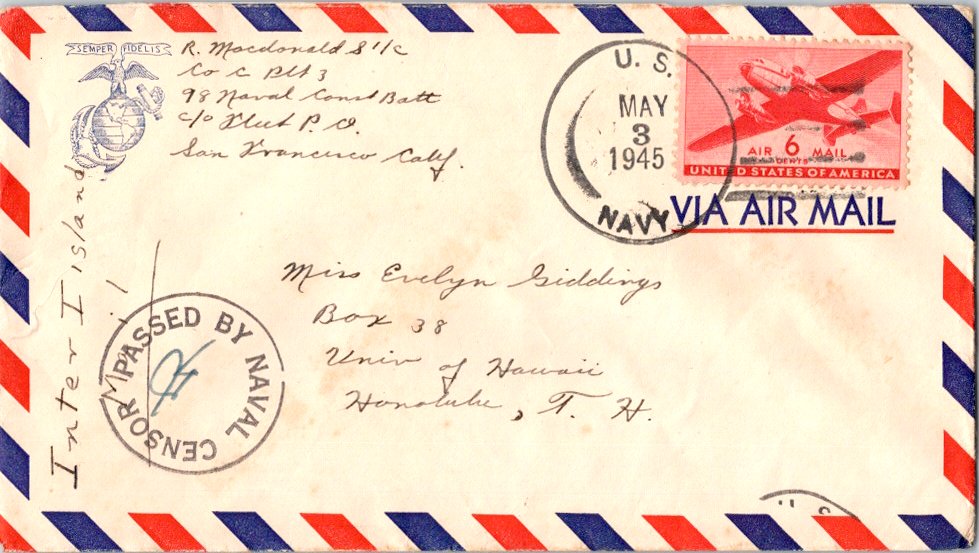 SEMPER FIDELIS
R. Macdonald S 1/c
Co C Plt 3
98 Naval Const Batt
c/o Fleet P. O.
San Francisco Calif.
U. S.
MAY
3
1945
NAVY
AIR 6 MAIL
CENTS
UNITED STATES OF AMERICA
VIA AIR MAIL
Inter Island
Miss Evelyn Giddings
Box 38
Univ of Hawaii
Honolulu, T. H.
PASSED BY NAVAL CENSOR
U. S.